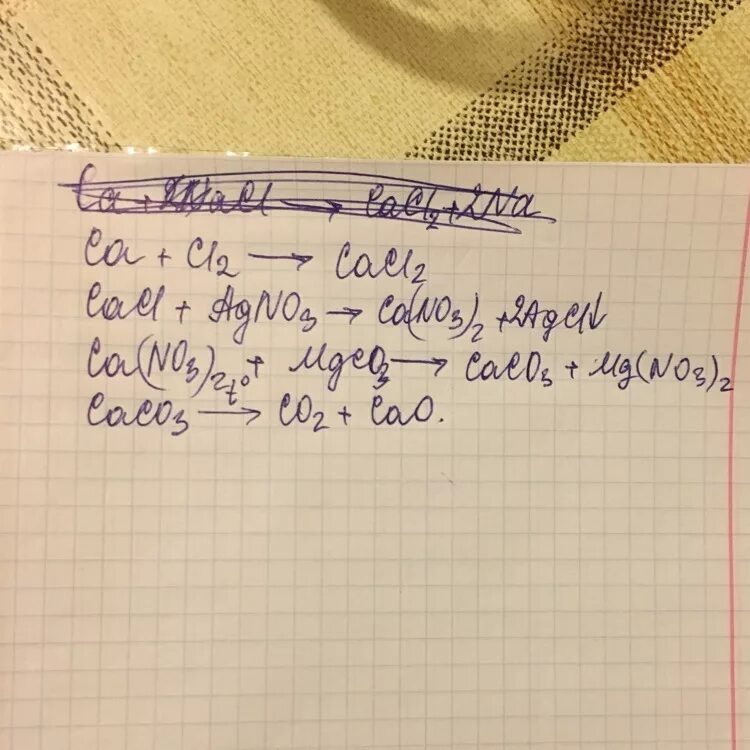 Ca + 2NaCl → CaCl₂ + 2Na
Ca + Cl₂ → CaCl₂
CaCl + AgNO₃ → Ca(NO₃)₂ + 2AgCl↓
Ca(NO₃)₂ + MgCO₃ → CaCO₃ + Mg(NO₃)₂
t°
CaCO₃ → CO₂ + CaO.